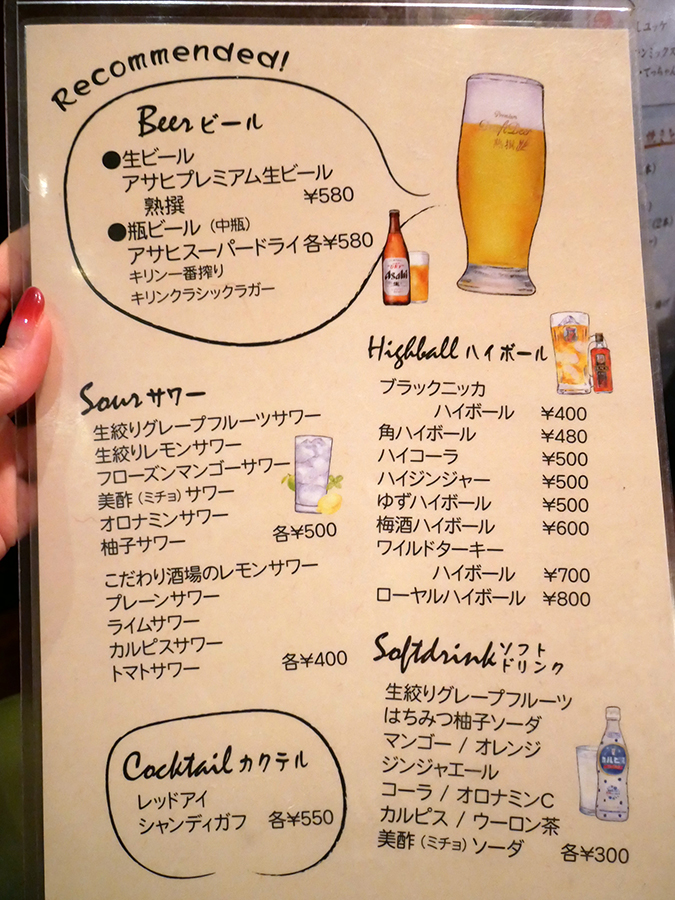 Recommended!
Beer ビール
●生ビール
アサヒプレミアム生ビール
熟撰 ¥580
●瓶ビール（中瓶）
アサヒスーパードライ 各¥580
キリン一番搾り
キリンクラシックラガー
熟撰
Asahi
Highball ハイボール
ブラックニッカ
ハイボール ¥400
角ハイボール ¥480
ハイコーラ ¥500
ハイジンジャー ¥500
ゆずハイボール ¥500
梅酒ハイボール ¥600
ワイルドターキー
ハイボール ¥700
ローヤルハイボール ¥800
Sour サワー
生絞りグレープフルーツサワー
生絞りレモンサワー
フローズンマンゴーサワー
美酢（ミチョ）サワー
オロナミンサワー
柚子サワー 各¥500
こだわり酒場のレモンサワー
プレーンサワー
ライムサワー
カルピスサワー
トマトサワー 各¥400
Softdrink ソフト
ドリンク
生絞りグレープフルーツ
はちみつ柚子ソーダ
マンゴー / オレンジ
ジンジャエール
コーラ / オロナミンC
カルピス / ウーロン茶
美酢（ミチョ）ソーダ 各¥300
カルピス
Cocktail カクテル
レッドアイ
シャンディガフ 各¥550